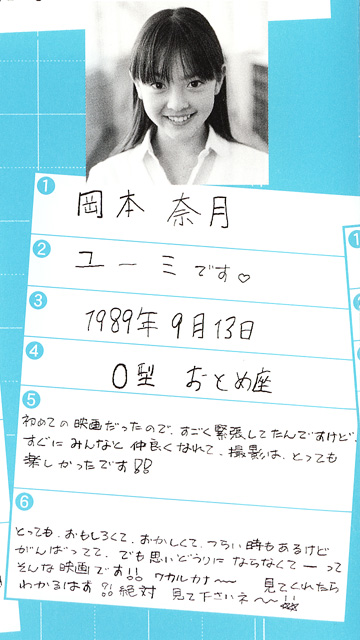 1
岡本 奈月
2
ユーミです♡
3
1989年 9月13日
4
O型 おとめ座
5
初めての映画だったので、すごく緊張してたんですけど、
すぐにみんなと仲良くなれて、撮影は、とっても
楽しかったです!!
6
とっても、おもしろくて、おかしくて、つらい時もあるけど
がんばってて、でも思いどうりにならなくてーって
そんな映画です!! ワカルカナ〜〜 見てくれたら
わかるはず!! 絶対 見て下さいネ〜〜!!